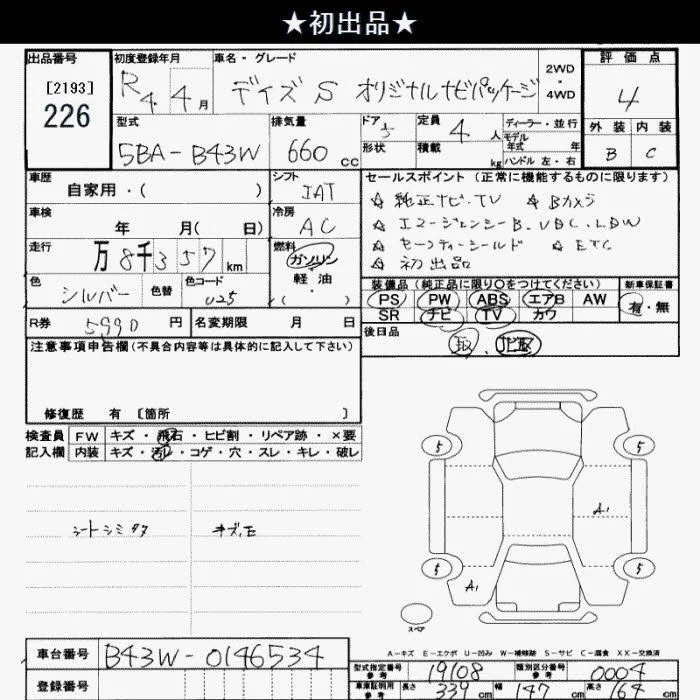 ★初出品★
出品番号
[2193]
226
初度登録年月
R4 4月
車名・グレード
デイズ S オリジナルナビパッケージ
2WD・4WD
評価点
4
外装 内装
B C
型式
5BA-B43W
排気量
660cc
ドア 5
形状
定員 4人
積載 kg
ディーラー・並行
モデル年式 年式
ハンドル 左・右
車歴
自家用・( )
シフト
IAT
車検
年 月( 日)
冷房
AC
走行
万8千357km
燃料
ガソリン
軽油
・( )
色
シルバー
色替
色コード
R券
5990円
名変期限 月 日
セールスポイント (正常に機能するものに限ります)
☆ 純正ナビ・TV ☆ Bカメラ
☆ エマージェンシーB、VDC、LDW
☆ セーフティーシールド ☆ ETC
☆ 初出品
装備品 (純正品に限り○をつけてください)
PS PW ABS エアB AW
SR ナビ TV カワ
新車保証書
有・無
後日品
取、ナビ取
注意事項申告欄 (不具合内容等は具体的に記入して下さい)
修復歴 有 〔箇所 〕
検査員記入欄
FW キズ・飛石・ヒビ割・リペア跡・×要
内装 キズ・汚レ・コゲ・穴・スレ・キレ・破レ
シートシミ タタ キズ,モ
5 5
A1
5 5
A1
スペア
A-キズ E-エクボ U-凹み W-補修跡 S-サビ C-腐食 XX-交換済
車台番号 B43W-0146534
登録番号
型式指定番号 参考 19108
類別区分番号 参考 0004
車庫証明用 参考 長さ 339cm 幅 147cm 高さ 164cm